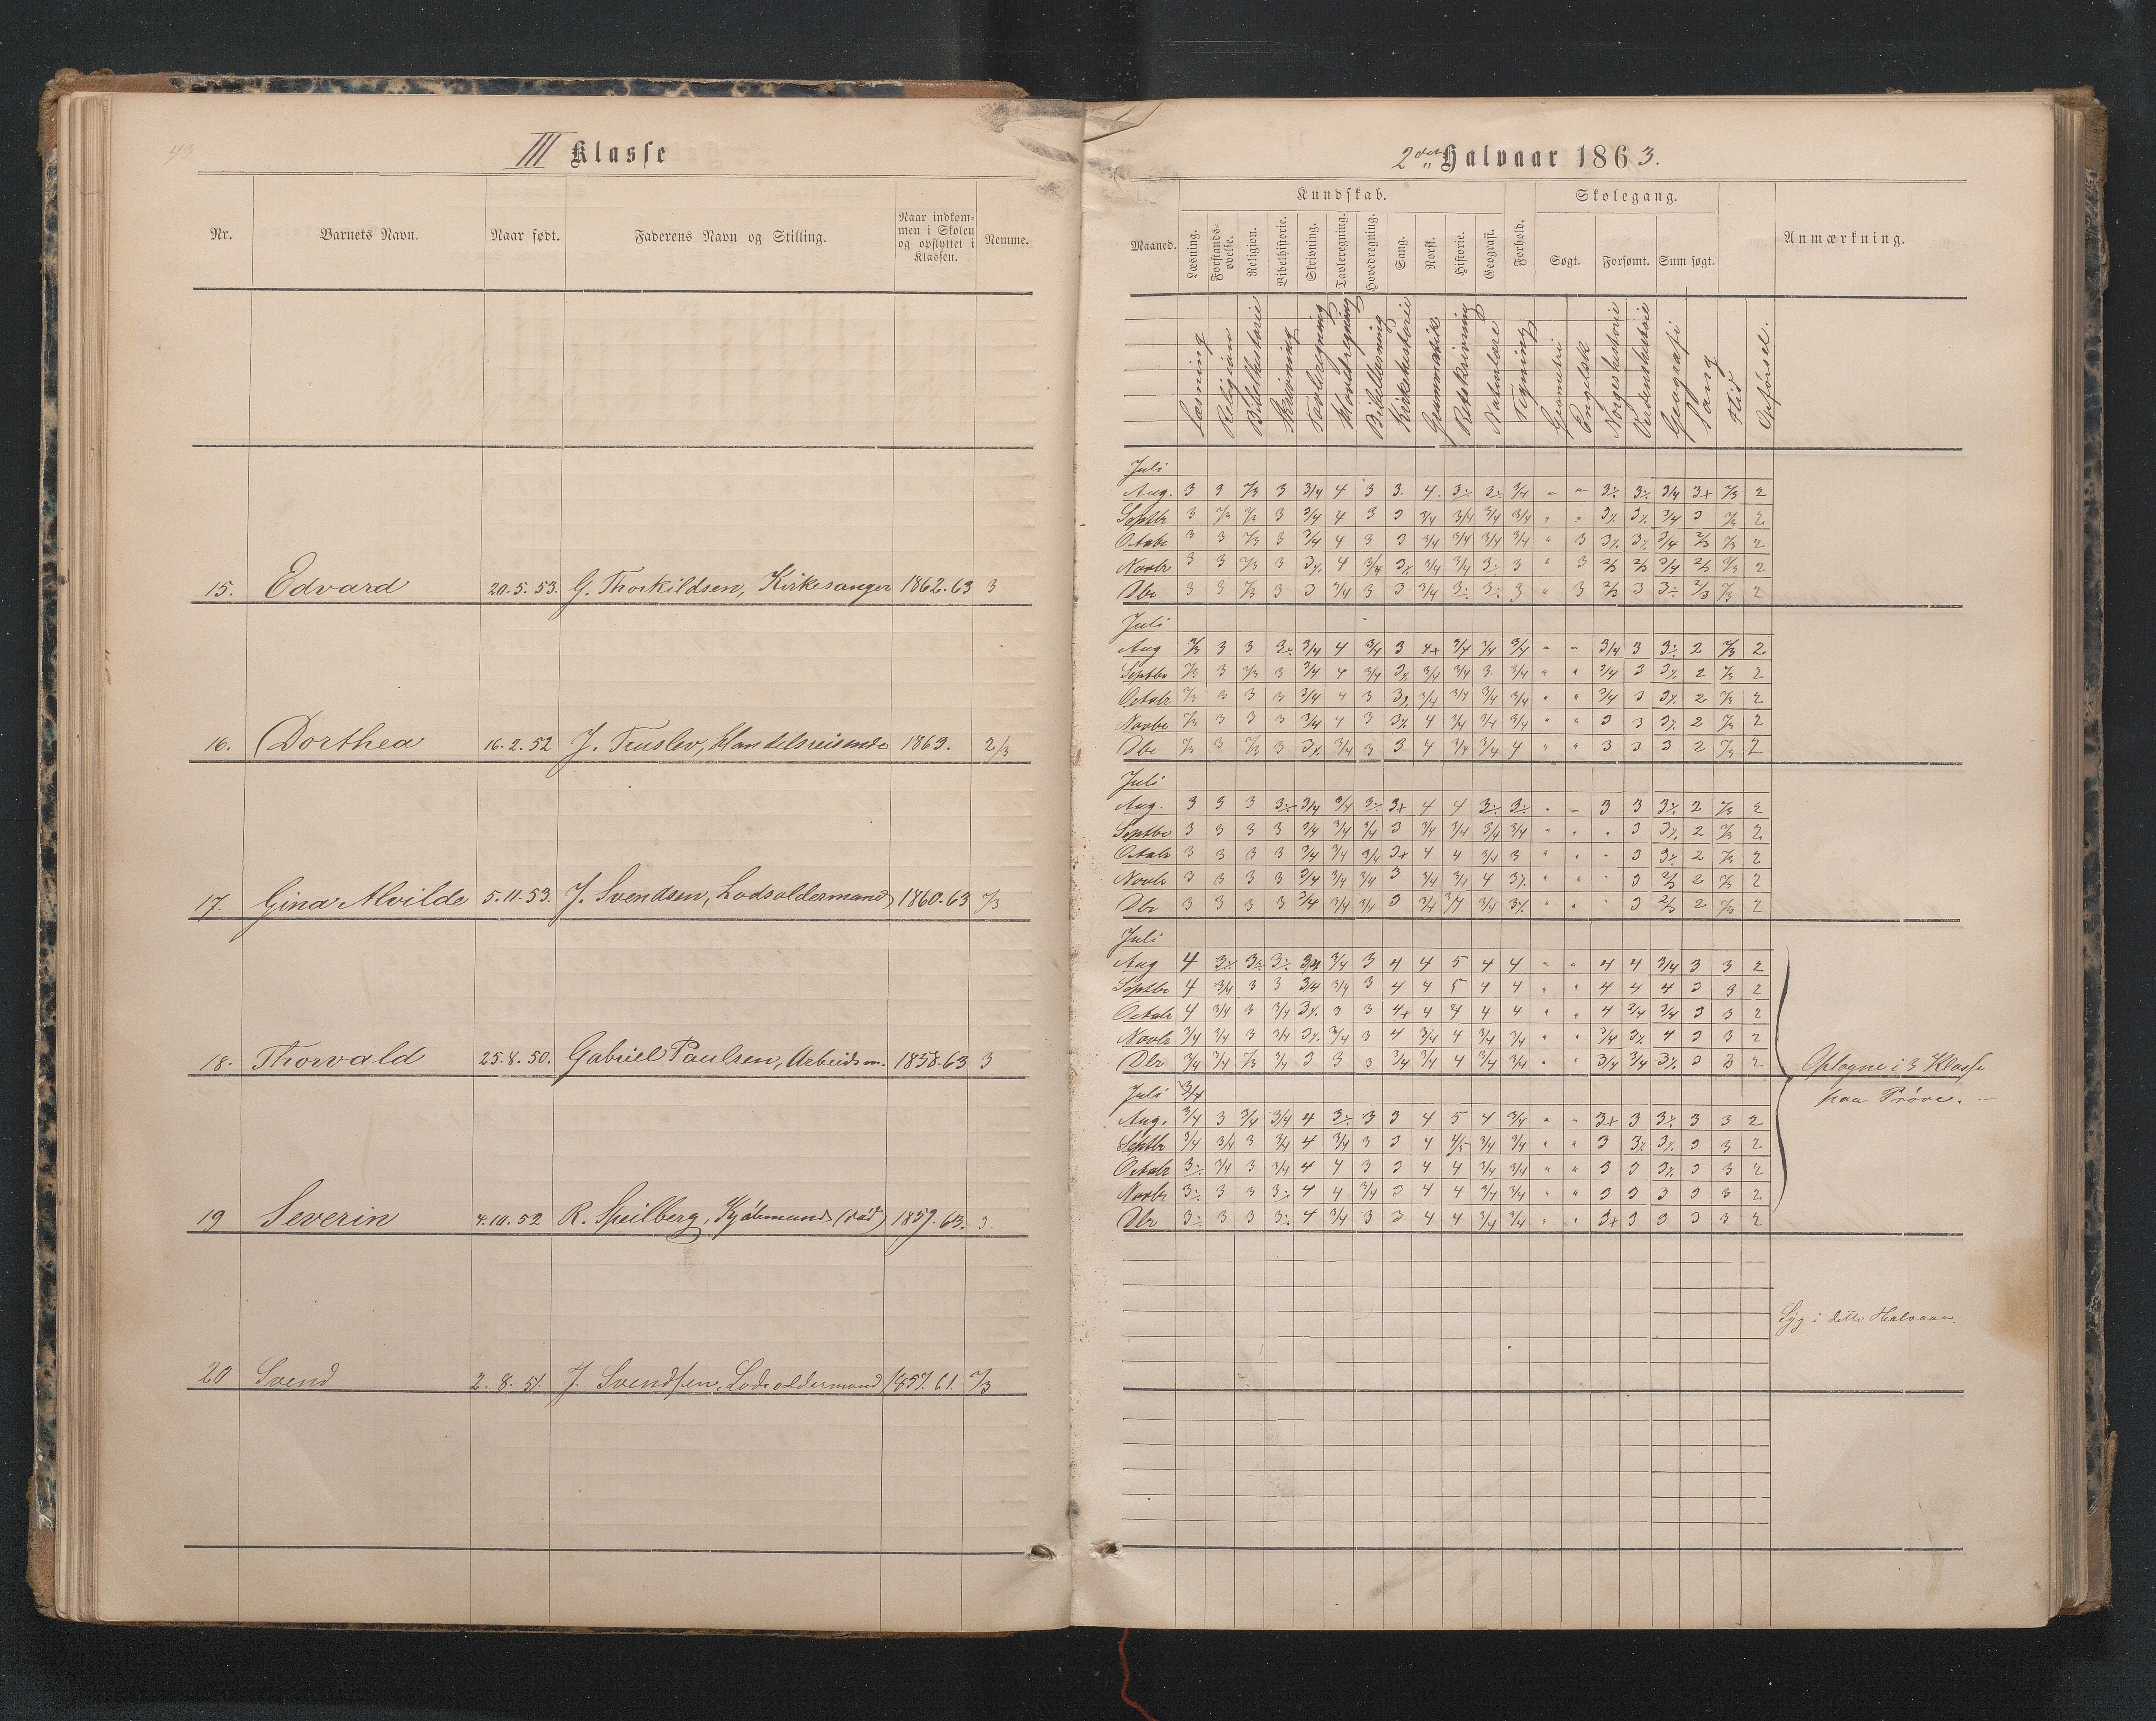 43
III Klasse
Nr. Barnets Navn. Naar født. Faderens Navn og Stilling. Naar indkommen i Skolen og opflyttet i Klassen. Nemme.
15. Edvard 20.5.53. G. Thorkildsen, Kirkesanger 1862.63 3
16. Dorthea 16.2.52 J. Handelsreisende 1863. 2/3
17. Gina Alvilde 5.11.53. J. Svendsen, Lodsoldermand 1860.63 2/3
18. Thorvald 25.8.50. Gabriel Paulsen, Arbeidsm. 1858.63 3
19 Severin 4.10.52 R. Speilberg, Kjøbmand (død) 1859.63. 3.
20 Svend 2.8.51. J. Svendsen, Lodsoldermand 1857.61. 2/3
2det Halvaar 1863.
Maaned. Kundskab. Skolegang. Anmærkning.
Læsning. Forstandsøvelse. Religion. Bibelhistorie. Skrivning. Tavleregning. Hovedregning. Sang. Norsk. Historie. Geografi. Forhold. Søgt. Forsømt. Sum søgt.
Læsning Religion Bibelhistorie Skrivning Tavleregning Hovedregning Bibellæsning Kirkehistorie Grammatik Retskrivning Naturlære Tegning Geometri Engelsk Norgeshistorie Verdenshistorie Geografi Sang Flid Opførsel.
Juli
Aug. 3 3 2/3 3 3/4 4 3 3. 4. 3÷ 3÷ 3/4 " " 3÷ 3÷ 3/4 3+ 2/3 2
Septbr 3 2/3 2/3 3 3/4 4 3 3 3/4 3/4 3/4 3/4 " " 3÷ 3÷ 3/4 3 2/3 2
Octobr 3 3 2/3 3 3/4 4 3 3 3/4 3/4 3/4 3/4 " 3 3÷ 3÷ 3/4 2/3 2/3 2
Novbr 3 3 2/3 3 3÷ 4 3/4 3÷ 3/4 3/4 3÷ 3 " 3 2/3 2/3 3/4 2/3 2/3 2
Dbr 3 3 2/3 3 3 3/4 3 3 3/4 3÷ 3÷ 3 " 3 2/3 3 3÷ 2/3 2/3 2
Juli
Aug 2/3 3 3 3÷ 3/4 4 3/4 3 4+ 3/4 3/4 3/4 " " 3/4 3 3÷ 2 2/3 2
Septbr 2/3 3 2/3 3 3/4 4 3/4 3÷ 3/4 3/4 3 3/4 " " 3/4 3 3÷ 2 2/3 2
Octobr 2/3 3 3 3 3/4 4 3 3÷ 3/4 3/4 3/4 3/4 " " 3/4 3 3÷ 2 2/3 2
Novbr 2/3 3 3 3 3/4 4 3 3÷ 4 3/4 3/4 3/4 " " 3 3 3÷ 2 2/3 2
Dbr 2/3 3 2/3 3 3÷ 3/4 3 3 4 3/4 3/4 4 " " 3 3 3 2 2/3 2
Juli
Aug. 3 3 3 3÷ 3/4 3/4 3÷ 3+ 4 4 3÷ 3÷ " " 3 3 3÷ 2 2/3 2
Septbr 3 3 3 3 3/4 3/4 3/4 3 3/4 3/4 3/4 3/4 " " " 3 3÷ 2 2/3 2
Octobr 3 3 3 3 3/4 3/4 3/4 3+ 4 4 3/4 3 " " " 3 3÷ 2 2/3 2
Novbr 3 3 3 3 3/4 3/4 3/4 3 3/4 3/4 4 3÷ " " " 3 2/3 2 2/3 2
Dbr 3 3 3 3 3/4 3/4 3/4 3 3/4 3/4 3/4 3÷ " " " 3 2/3 2 2/3 2
Juli
Aug 4 3÷ 3÷ 3÷ 3/4 3/4 3 4 4 5 4 4 " " 4 4 3/4 3 3 2
Septbr 4 3/4 3 3 3/4 3/4 3 4 4 5 4 4 " " 4 4 4 3 3 2
Octobr 4 3/4 3 3/4 3÷ 3 3 4+ 4 4 4 4 " " 4 3/4 3/4 3 3 2
Novbr 3/4 3/4 3 3/4 3÷ 3/4 3 4 3/4 4 3/4 3/4 " " 3/4 3÷ 4 3 3 2
Dbr 3/4 3/4 2/3 3/4 3 3 3 3/4 3/4 4 3/4 3/4 " " 3/4 3/4 3÷ 3 3 2
Optagne i 3 Klasse
paa Prøve. —
Juli 3/4
Aug. 3/4 3 3/4 3/4 4 3÷ 3 3 4 5 4 3/4 " " 3+ 3 3÷ 3 3 2
Septbr 3/4 3/4 3 3/4 4 3/4 3 3 4 4/5 3/4 3/4 " " 3 3÷ 3÷ 3 3 2
Octobr 3÷ 3/4 3 3/4 4 4 3 3 4 4 3/4 3/4 " " 3 3 3÷ 3 3 2
Novbr 3÷ 3 3 3÷ 4 4 3/4 3 4 4 3/4 3/4 " " 3 3 3 3 3 2
Dbr 3÷ 3 3 3÷ 4 3/4 3 3 4 4 3/4 3/4 " " 3+ 3 3 3 3 2
Syg i dette Halvaar.